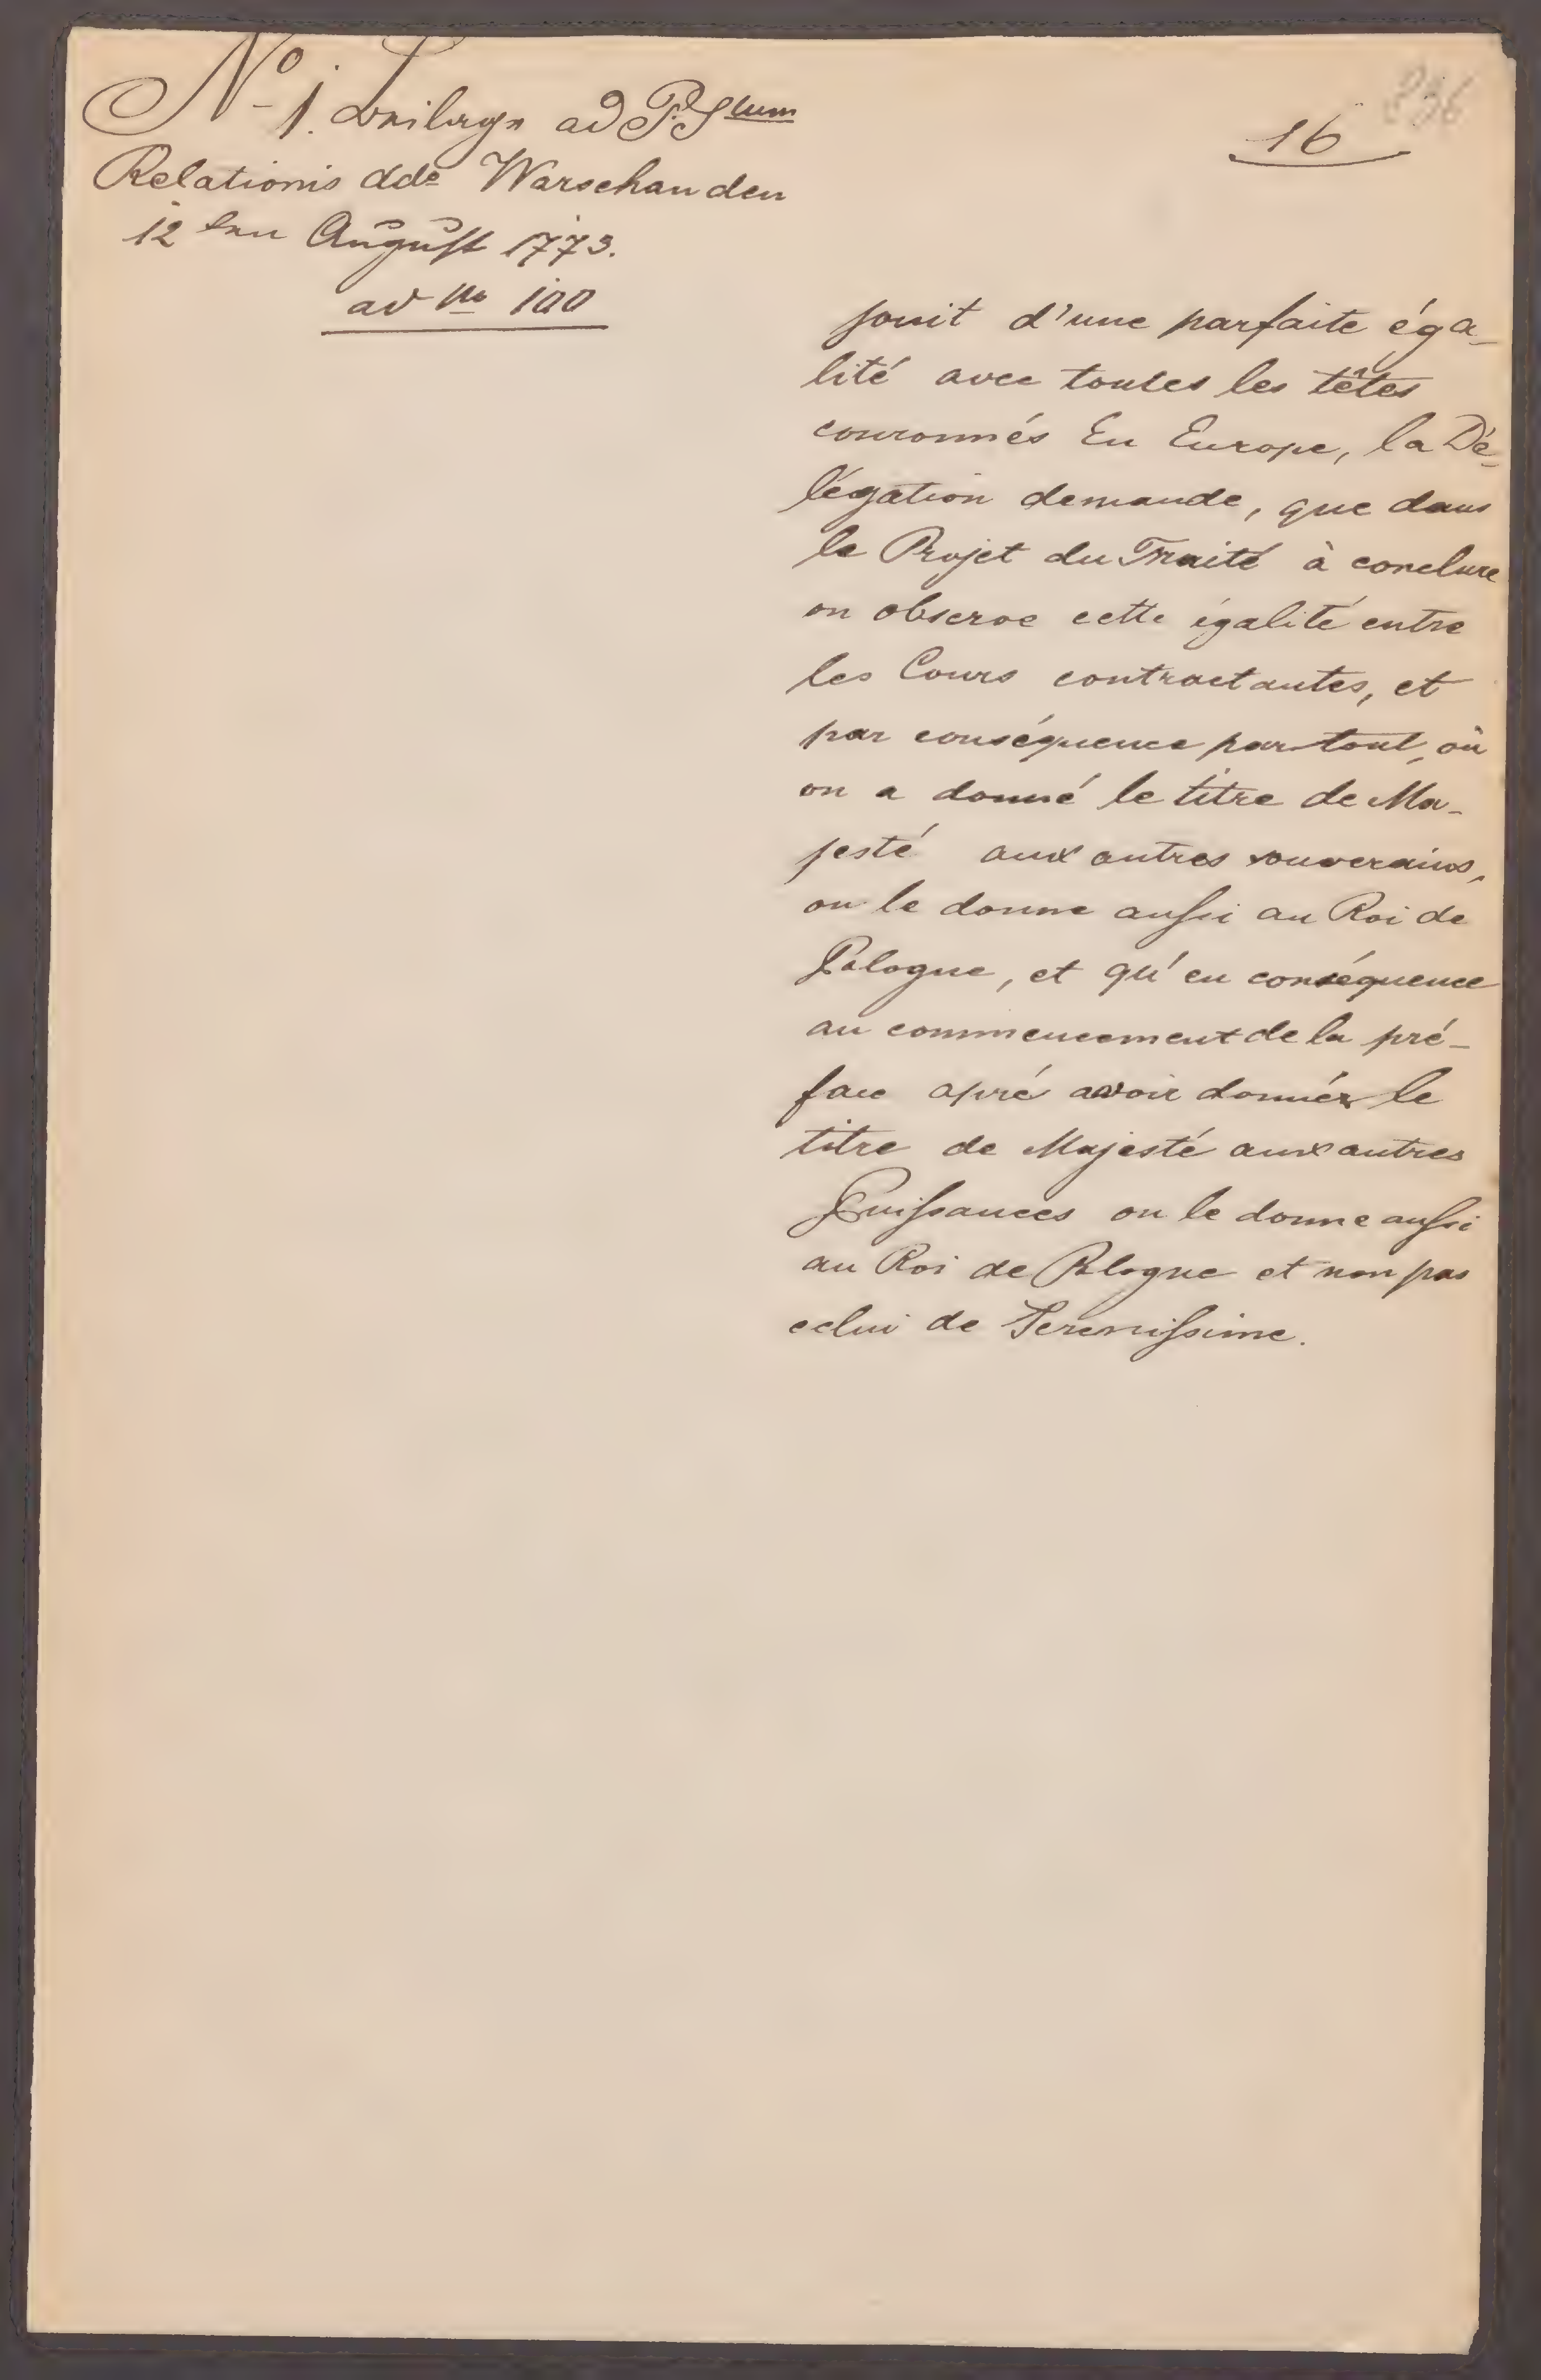 No 1. Beilage ad PSctum
Relationis ddo Warschau den
12ten August 1773.
ad No 100
16
836
jouit d'une parfaite éga-
lité avec toutes les têtes
couronnés En Europe, la Dé-
légation demande, que dans
le Projet du Traité à conclure
on observe cette égalité entre
les Cours contractantes, et
par conséquence par-tout, où
on a donné le titre de Ma-
jesté aux autres souverains,
on le donne aussi au Roi de
Pologne, et qu'en conséquence
au commencement de la pré-
face apré avoir donnér le
titre de Majesté aux autres
Puissances on le donne aussi
au Roi de Pologne et non pas
celui de Serenissime.